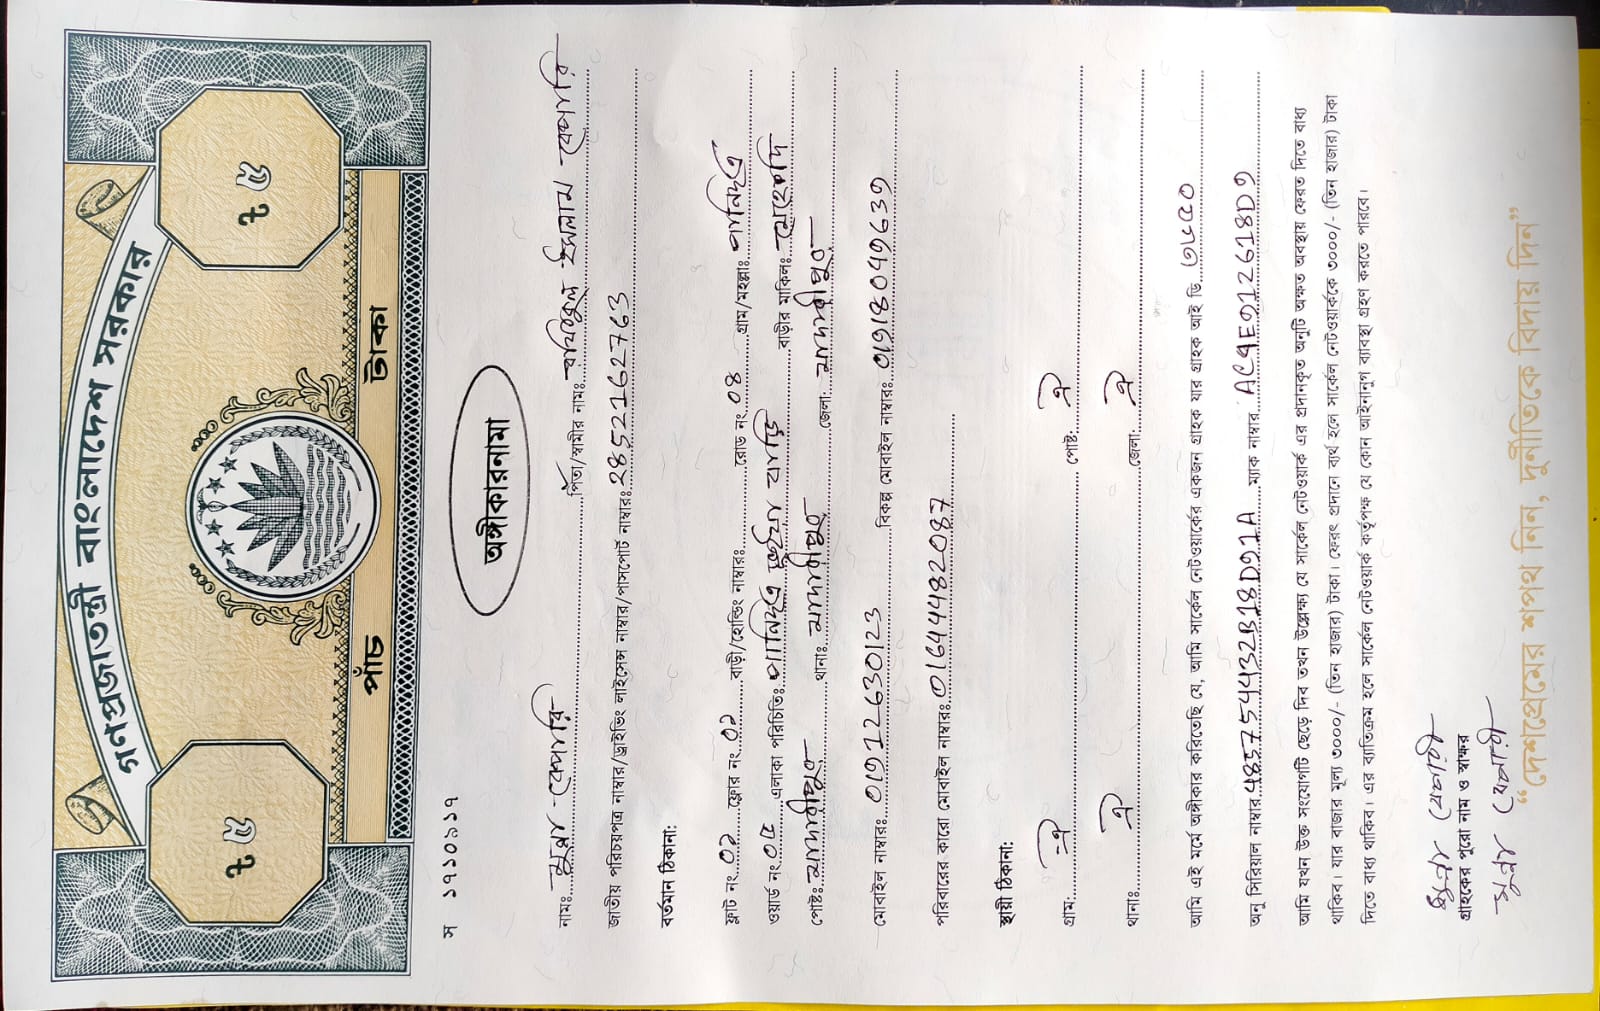 গণপ্রজাতন্ত্রী বাংলাদেশ সরকার
৳ ৫
৳ ৫
পাঁচ টাকা
স ১৭১০৯১৭
অঙ্গীকারনামা
নাম: মুন্না বেপারি পিতা/স্বামীর নাম: রফিকুল ইসলাম বেপারি
জাতীয় পরিচয়পত্র নাম্বার/ড্রাইভিং লাইসেন্স নাম্বার/পাসপোর্ট নাম্বার: 2852162763
বর্তমান ঠিকানা:
ফ্লাট নং: ০১ ফ্লোর নং: ০১ বাড়ী/হোল্ডিং নাম্বার: রোড নং: ০৪ গ্রাম/মহল্লা: পানিছত্র
ওয়ার্ড নং: ০৫ এলাকা পরিচিতি: পানিছত্র ভূইয়া বাড়ি বাড়ীর মালিক: মেহেদি
পোষ্ট: মাদারীপুর থানা: মাদারীপুর জেলা: মাদারীপুর
মোবাইল নাম্বার: 01912630123 বিকল্প মোবাইল নাম্বার: 01918049639
পরিবারের কারো মোবাইল নাম্বার: 01644482087
স্থায়ী ঠিকানা:
গ্রাম: ঐ পোষ্ট: ঐ
থানাঃ ঐ জেলা: ঐ
আমি এই মর্মে অঙ্গীকার করিতেছি যে, আমি সার্কেল নেটওয়ার্কের একজন গ্রাহক যার গ্রাহক আই ডি. ৩৮৫০
অনু সিরিয়াল নাম্বার 485754432B18D91A ম্যাক নাম্বার AC9E912618D9
আমি যখন উক্ত সংযোগটি ছেড়ে দিব তখন উল্লেক্ষ্য যে সার্কেল নেটওয়ার্ক এর প্রদানকৃত অনুটি অক্ষত অবস্থায় ফেরত দিতে বাধ্য
থাকিব। যার বাজার মূল্য ৩০০০/- (তিন হাজার) টাকা। ফেরৎ প্রদানে ব্যর্থ হলে সার্কেল নেটওয়ার্ককে ৩০০০/- (তিন হাজার) টাকা
দিতে বাধ্য থাকিব। এর ব্যতিক্রম হলে সার্কেল নেটওয়ার্ক কর্তৃপক্ষ যে কোন আইনানুগ ব্যাবস্থা গ্রহণ করতে পারবে।
মুন্না বেপারী
গ্রাহকের পুরো নাম ও স্বাক্ষর
মুন্না বেপারী
“দেশপ্রেমের শপথ নিন, দুর্নীতিকে বিদায় দিন”